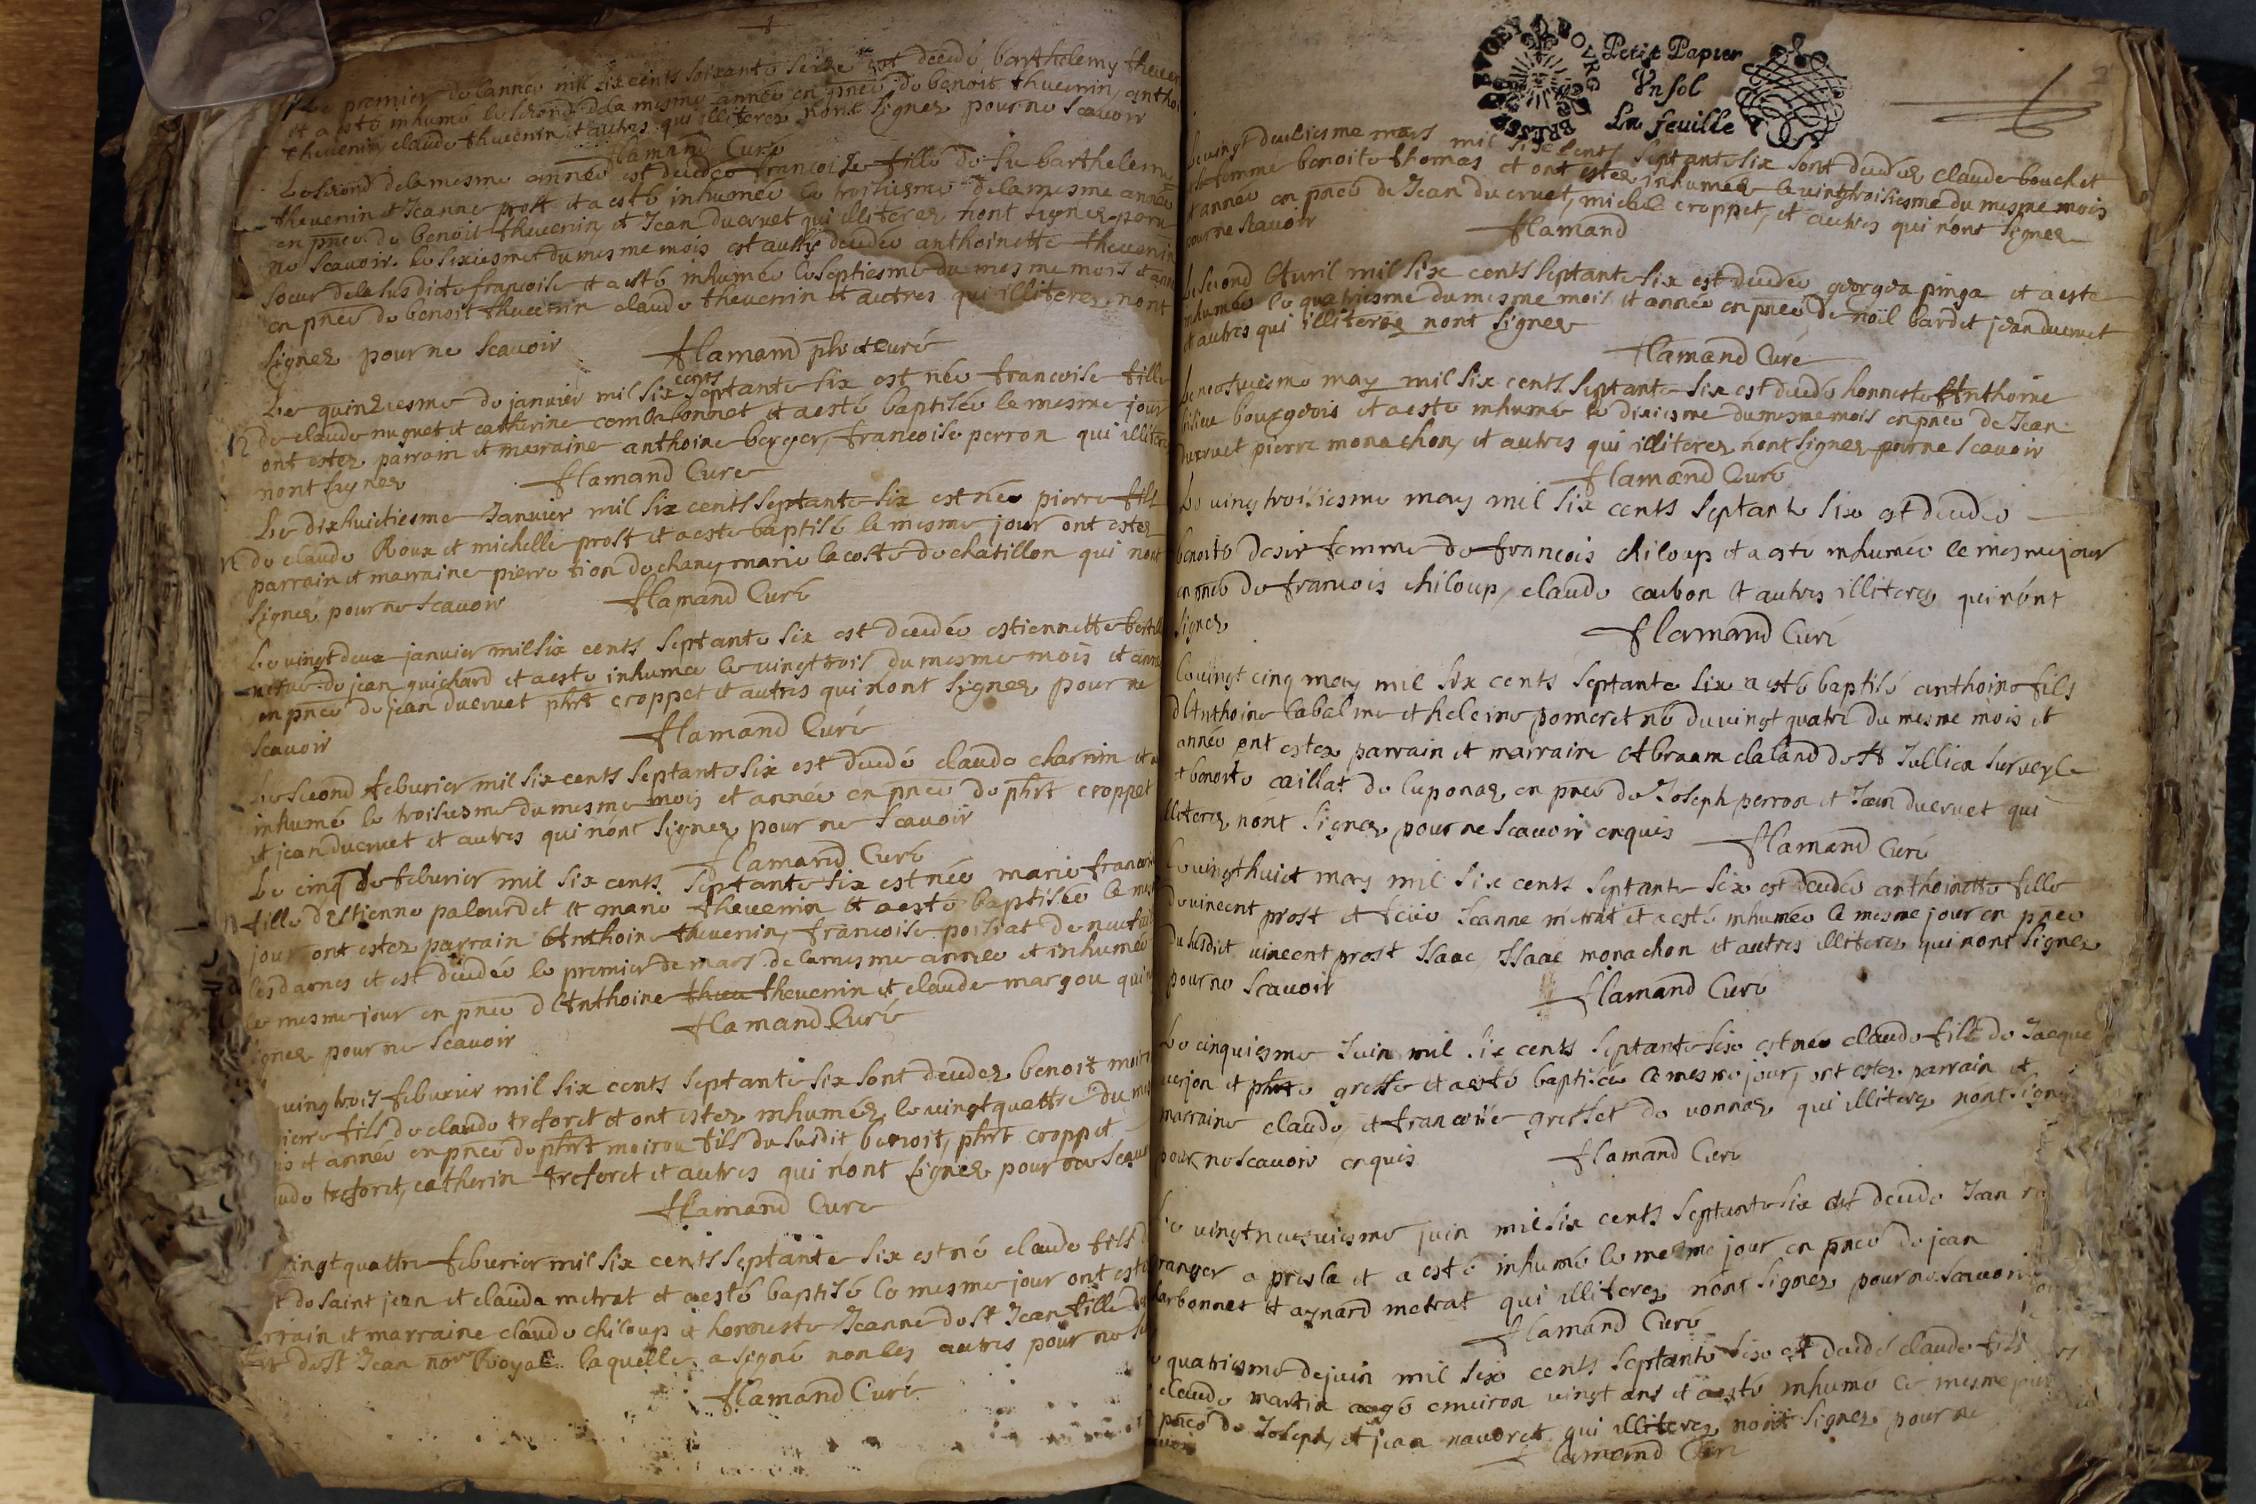 Le premier de lannée mil six cents soixante seize est decedé barthelemy theven
et a esté inhumé le second de la mesme année en pnce de benoit thevenin, antho
thevenin claude thevenin et autres qui illiterez nont signez pour ne scavoir
flamand Curé
Le second de la mesme année est decedée francoise fille de fu barthelem
thevenin et Jeanne prost et a esté inhumée le troisiesme de la mesme année
en pnce de benoit thevenin et Jean ducruet qui illiterez nont signez pour
ne scavoir. le sixiesme du mesme mois est aussy decedée anthoinette thevenin
soeur de la susdite francoise et a esté inhumée le septiesme du mesme mois et ann
en pnce de benoit thevenin claude thevenin et autres qui illiterez nont
signez pour ne scavoir flamand pbre et curé
Le quinziesme de janvier mil six cents septante six est née francoise fille
de claude nuguet et catherine comtabonnet et a esté baptisée le mesme jour
ont estez parrain et marraine anthoine berger, francoise perron qui illiter
nont signez flamand Curé
Le dixhuictiesme Janvier mil six cents septante six est né pierre fils
de claude Roux et michelle prost et a esté baptisé le mesme jour ont estez
parrain et marraine pierre tion de chaney marie lacoste de chatillon qui nont
signez pour ne scavoir flamand Curé
Le vingt deux janvier mil six cents septante six est decedée estiennette
de jean guichard et a esté inhumée le vingt trois du mesme mois et anné
en pnce de jean ducruet phrt croppet et autres qui nont signez pour ne
scavoir flamand Curé
Le second feburier mil six cents septante six est decedé claude charnin et a
inhumé le troisiesme du mesme mois et année en pnce de phrt croppet
et jean ducruet et autres qui nont signez pour ne scavoir
flamand Curé
Le cinq de feburier mil six cents septante six est née marie francoise
fille d'Estienne palourdet et marie thevenin et a esté baptisée le mes
jour ont estez parrain Anthoine thevenin, francoise poisiat de neufvil
les dames et est decedée le premier de mars de la mesme année et inhumée
le mesme jour en pnce d'Anthoine thevenin et claude margou qui n
ignez pour ne scavoir flamand Curé
vingtrois feburier mil six cents septante six sont decedez benoit moir
pierre fils de claude treforet et ont estez inhumez le vingt quattre du mes
is et année en pnce de phrt moirou fils du susdit benoit, phrt croppet
aude treforet, catherin treforet et autres qui nont signez pour ne scav
flamand Curé
ingt quattre feburier mil six cents septante six est né claude fils d
de saint jean et clauda metrat et a esté baptisé le mesme jour ont este
rrain et marraine claude chiloup et honneste Jeanne de st Jean fille de
de st Jean nore Royal laquelle a signé non les autres pour ne
flamand Curé
Petit Papier
Vn sol
La feuille
BRESSE
BOVRG
2
Le vingt deuxiesme mars mil six cents septante six sont decedez claude bouchet
sa femme benoite thomas et ont estez inhumez le vingtroisiesme du mesme mois
et année en pnce de Jean ducruet, michel croppet, et autres qui nont signez
pour ne scavoir flamand
Le second Avril mil six cents septante six est decedée georgea pinga et a esté
inhumée le quatriesme du mesme mois et année en pnce de noil bardet jean ducruet
et autres qui illiterez nont signez
flamand Curé
Le neofviesme may mil six cents septante six est decedé honneste Anthoine
bourgeois et a esté inhumé le dixiesme du mesme mois en pnce de Jean
ducruet pierre monachon, et autres qui illiterez nont signez pour ne scavoir
flamand Curé
Le vingtroisiesme may mil six cents septante six est decedée
benoite desir femme de francois chiloup et a esté inhumée le mesme jour
en pnce de francois chiloup, claude carbon et autres illiterez qui nont
signez flamand Curé
Le vingt cinq may mil six cents septante six a esté baptisé anthoine fils
d'Anthoine labalme et heleine pomeret né du vingt quatre du mesme mois et
année ont estez parrain et marraine Abraam claland de St Jullien sur veyle
et benoite caillat de luponas, en pnce de Joseph perron et Jean ducruet qui
illiterez nont signez pour ne scavoir enquis flamand Curé
Le vingthuict may mil six cents septante six est decedée anthoinette fille
de vincent prost et feüe Jeanne metrat et a esté inhumée le mesme jour en pnce
du susdict vincent prost Isaac, Isaac monachon et autres illiterez qui nont signez
pour ne scavoir flamand Curé
Le cinquiesme Juin mil six cents septante six est né claude fils de Jacque
verjon et phrte gresse et a esté baptisé le mesme jour, ont estez parrain et
marraine claude, et francoise gresset de vonnas, qui illiterez nont signe
pour ne scavoir enquis flamand Curé
Le vingtneufviesme juin mil six cents septante six est decedé Jean
ranger a presla et a esté inhumé le mesme jour en pnce de jean
arbonnet et aynard metrat qui illiterez nont signez pour ne scavoir
flamand Curé
quatriesme de juin mil six cents septante six est decedé claude fils
claude martin aagé environ vingt ans et a esté inhumé le mesme jour
pnce de Joseph, et jean navoret qui illiterez nont signez pour ne
flamand Curé